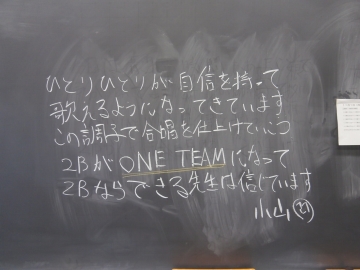 ひとりひとりが自信を持って
歌えるようになってきています
この調子で合唱を仕上げていこう
2BがONE TEAMになって
2Bならできる先生は信じています
小山